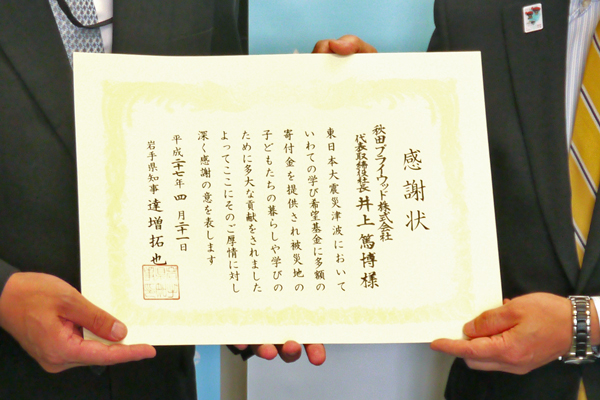 感謝状
秋田プライウッド株式会社
代表取締役社長 井上篤博様
東日本大震災津波において
いわての学び希望基金に多額の
寄付金を提供され被災地の
子どもたちの暮らしや学びの
ために多大な貢献をされました
よってここにそのご厚情に対し
深く感謝の意を表します
平成二十七年四月二十一日
岩手県知事 達増拓也